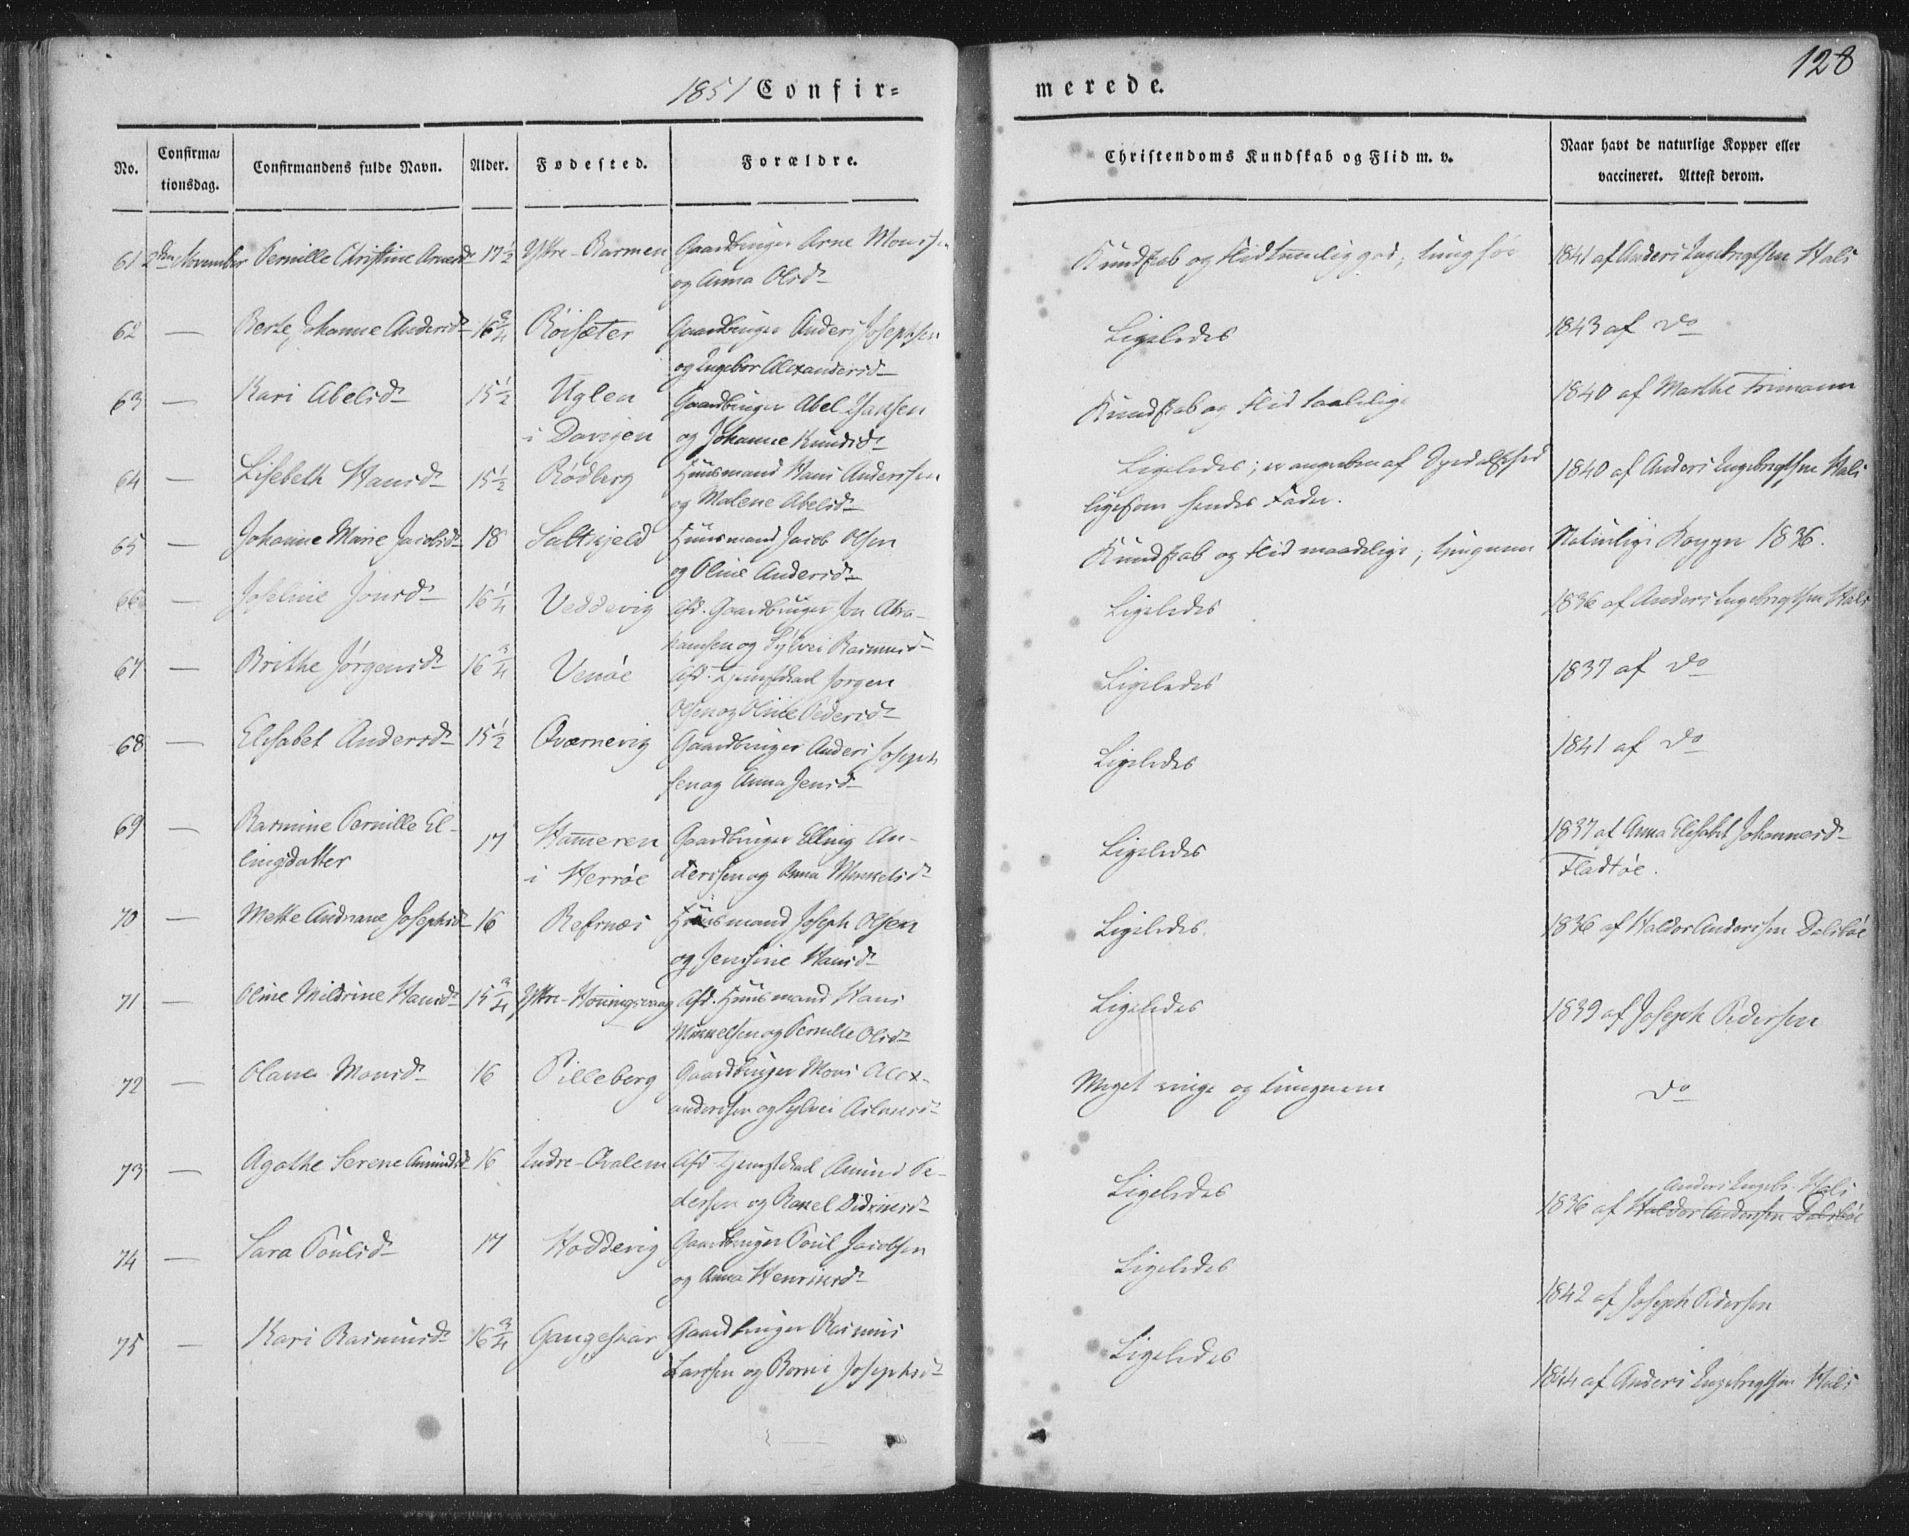 1851 Confir=
merede.
128
No.
Confirma=
tionsdag.
Confirmandens fulde Navn.
Alder.
Fødested.
Forældre.
Christendoms Kundskab og Flid m. v.
Naar havt de naturlige Kopper eller
vaccineret. Attest derom.
61 2den November Pernille Christine Arnesdr 17 1/2 Ystre-Barmen Gaardbruger Arne Monssen
og Anna Olsdr
Kundskab og Flid temmelig god; 1841 af Anders Ingebregtsen Hals
62 — Berte Johanne Andersdr 16 3/4 Röisæter Gaardbruger Anders Josephsen
og Ingebor Alexandersd
Ligeledes 1843 af do
63 — Kari Abelsdr 15 1/2 Uglen Gaardbruger Abel
i Davigen og Johanne Knudsdr
Kundskab og Flid taalelige 1840 af Marthe Frimann
64 — Lisebeth Hansdr 15 1/2 Rödberg Huusmand Hans Anderssen
og Malene Abelsdr
Ligeledes; er angreben af Spedalskhed 1840 af Anders Ingebregtsen Hals
ligesom hendes Fader.
65 — Johanne Marie Jacobsdr 18 Saltkjeld Huusmand Jacob Olsen
og Oline Andersdr
Kundskab og Flid maadelige; tungnem Naturlige Kopper 1836.
66 — Joseline Jonsdr 16 1/4 Veddevig Afd. Gaardbruger Jon Abra-
hamsen og Sylvei Rasmusd
Ligeledes 1836 af Anders Ingebregtsen Hals
67 — Brithe Jørgensdr 16 3/4 Venöe Afd. Tjenstkarl Jørgen
Olsen og Oline Pedersdr
Ligeledes 1837 af do
68 — Elisabet Andersdr 15 1/2 Qværnevig Gaardbruger Anders Joseph
sen og Anna Jensdr
Ligeledes 1841 af do
69 — Rasmine Pernille El-
lingsdatter 17 Hameren Gaardbruger Elling An-
i Herröe derssen og Anna Mikkelsdr
Ligeledes 1837 af Anna Elisabet Johannesdr
Fladtöe.
70 — Mette Andriane Josephsdr 16 Refsnæs Huusmand Joseph Olsen
og Jensine Hansdr
Ligeledes 1836 af Haldor Anderssen Dalsböe
71 — Oline Mildrine Hansdr 15 3/4 Ystre-Honningsvaag Afd. Huusmand Hans
Mikkelsen og Pernille Olsdr
Ligeledes 1839 af Joseph Pedersen
72 — Olana Monsdr 16 Pilleberg Gaardbruger Mons Alex-
anderssen og Sylvei
Meget ringe og tungnem do
73 — Agathe Serene Amundsdr 16 Indre-Qvalem Afd Tjenstkarl Amund Pe-
dersen og Rakel Didriksdr
Ligeledes
Anders Ingebr. Hals
1836 af Haldor Andersen Dalsböe
74 — Sara Poulsdr 17 Hoddevig Gaardbruger Poul Jacobsen
og Anna Henriksdr
Ligeledes 1842 af Joseph Pedersen
75 — Kari Rasmusdr 16 3/4 Gangeskar Gaardbruger Rasmus
Larssen og Borni Josephsdr
Ligeledes 1844 af Anders Ingebregtsen Hals